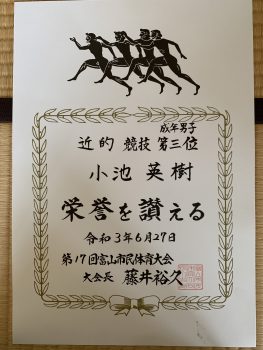 成年男子
近的 競技 第三位
小池 英樹
栄誉を讃える
令和3年6月27日
第17回富山市民体育大会
大会長 藤井裕久